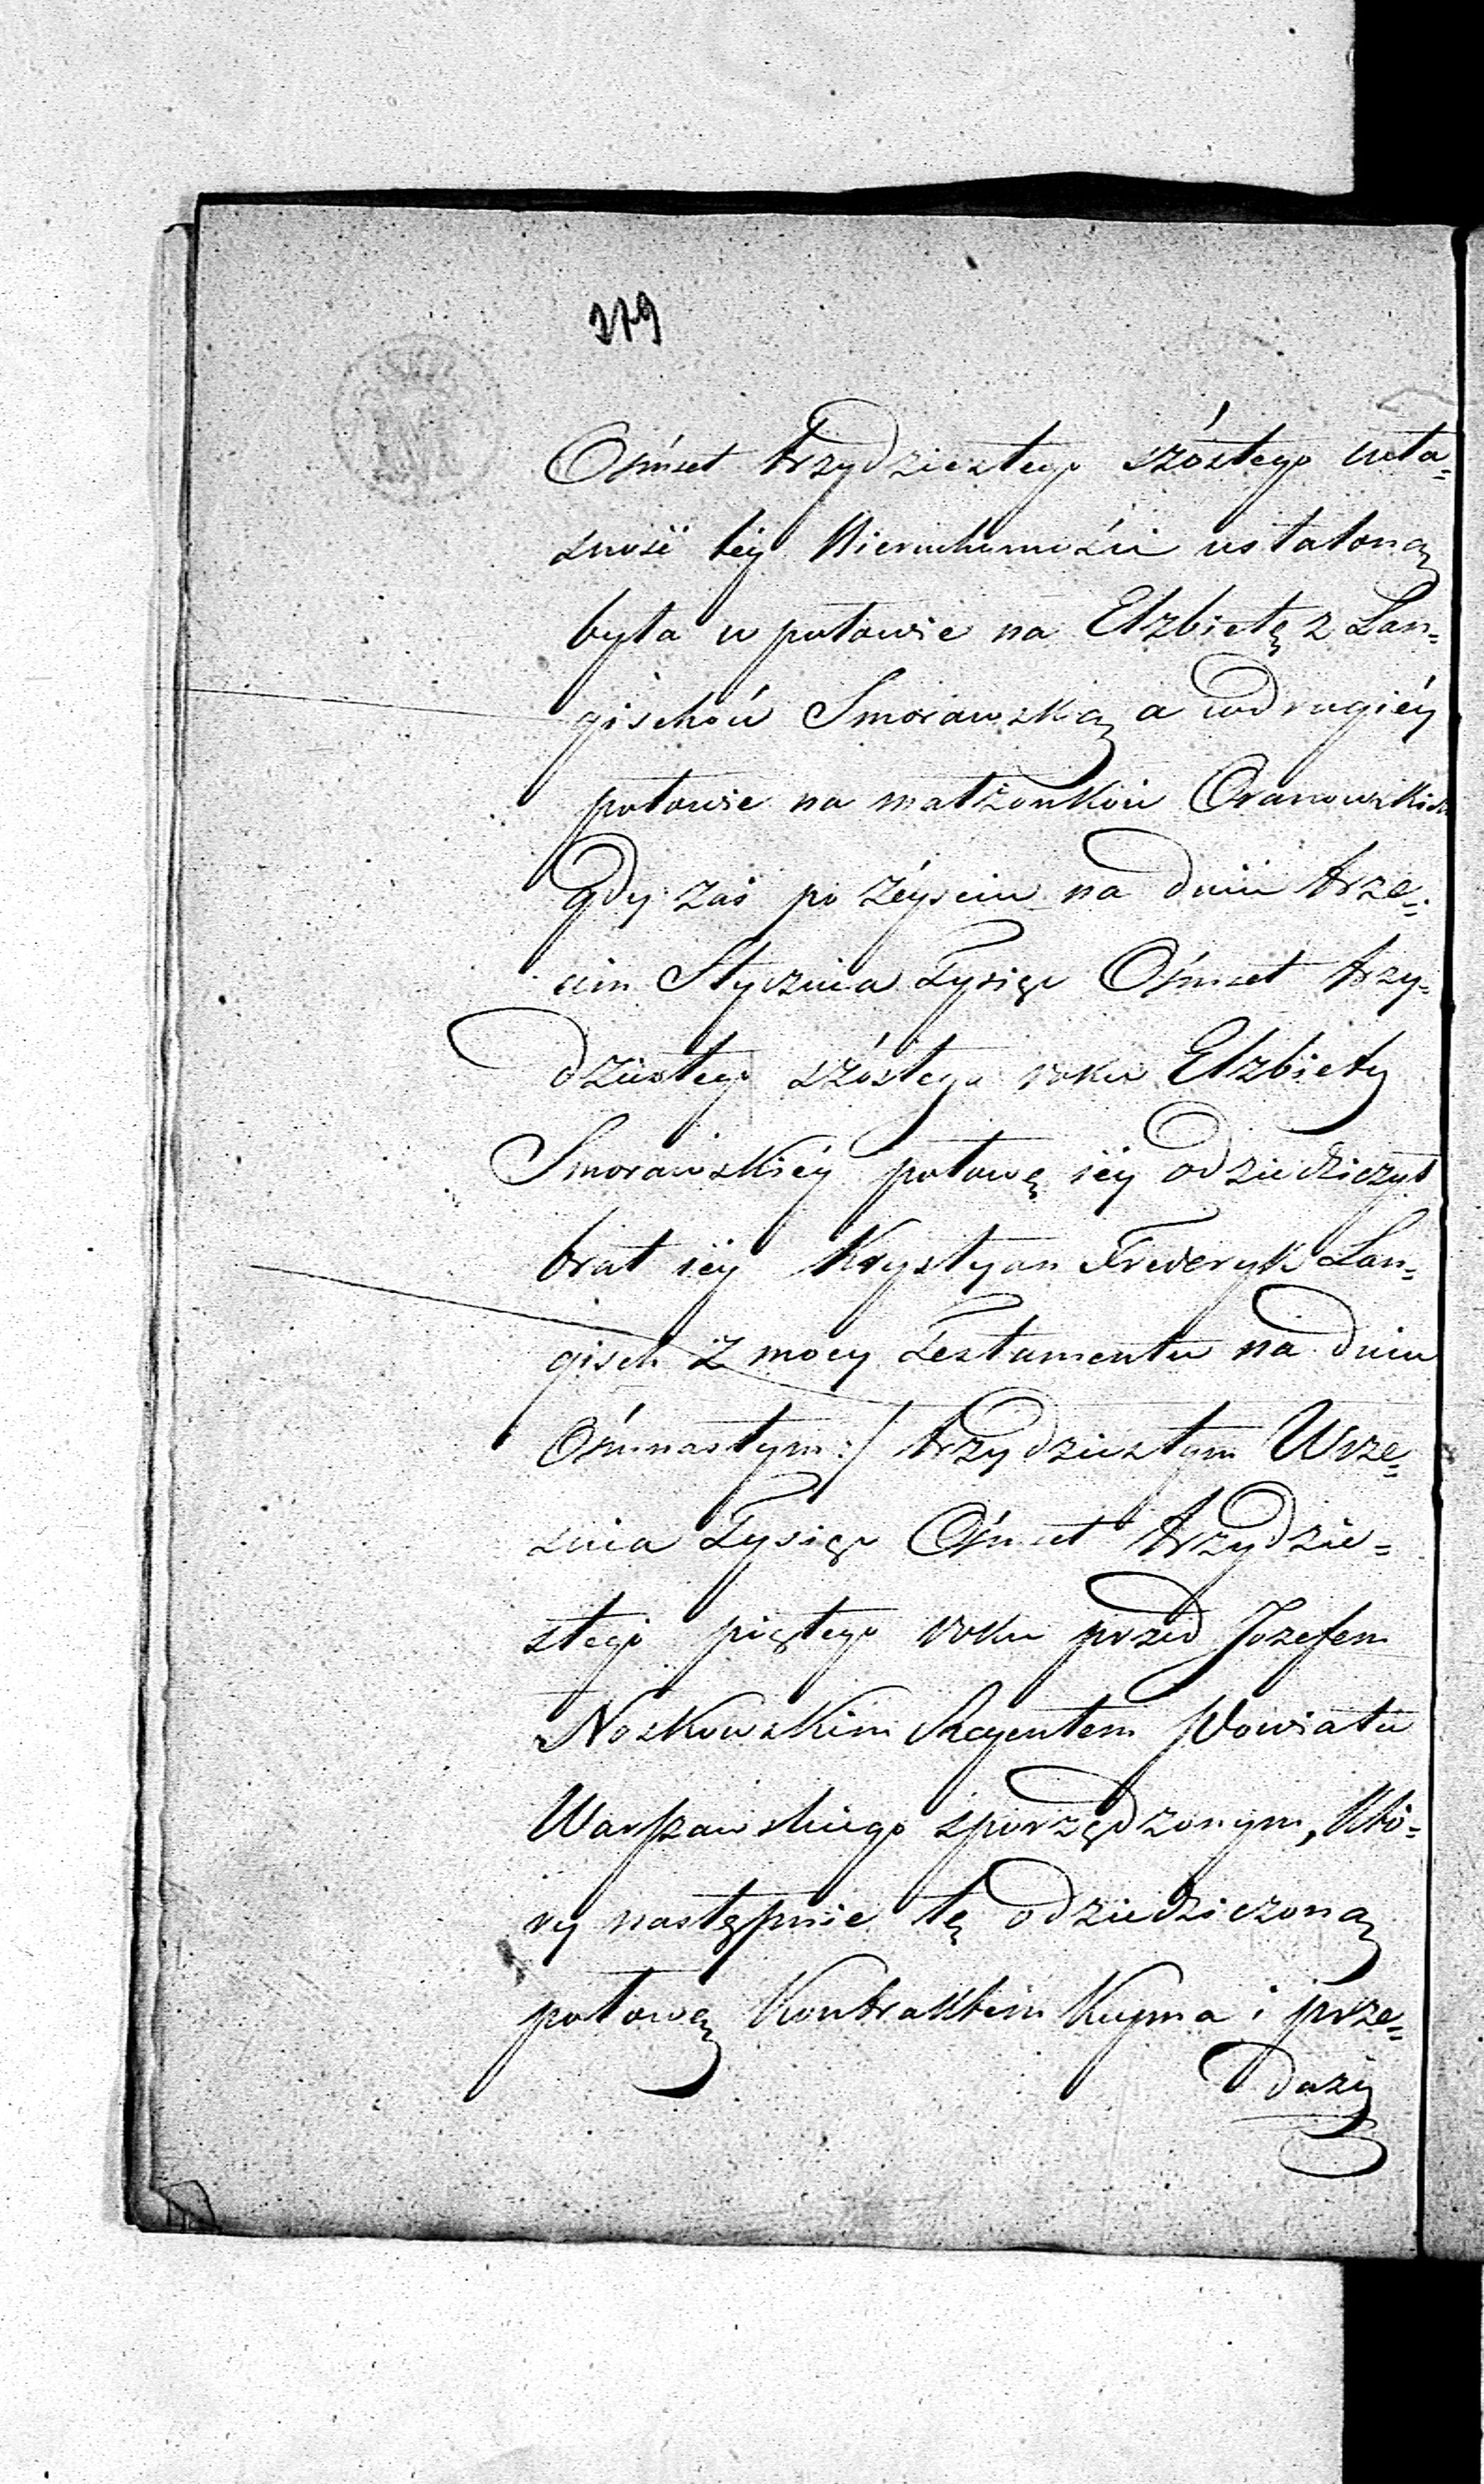 279
Ośmset trzydziestego szóstego wła=
sność téy Nieruchomości ustaloną
była w połowie na Elżbietę z Lan=
gischów Smorawską a wdrugiéy
połowie na małżonków Oranowskich
Gdy zaś po zéyściu na dniu trze=
cim Stycznia Tysiąc Ośmset trzy=
dziestego szóstego roku Elżbiety
Smorawskiéy połowę iéy odziedziczył
brat iéy Krystyan Frederyk Lan=
gisch z mocy Testamentu na dniu
Ośmnastym :/ trzydziestym Wrze=
śnia Tysiąc Ośmset trzydzie=
stego piątego roku przed Józefem
Noskowskim Rejentem Powiatu
Warszawskiego sporządzonym, Któ=
ry następnie tę odziedziczoną
połowę Kontraktem Kupna i prze=
daży